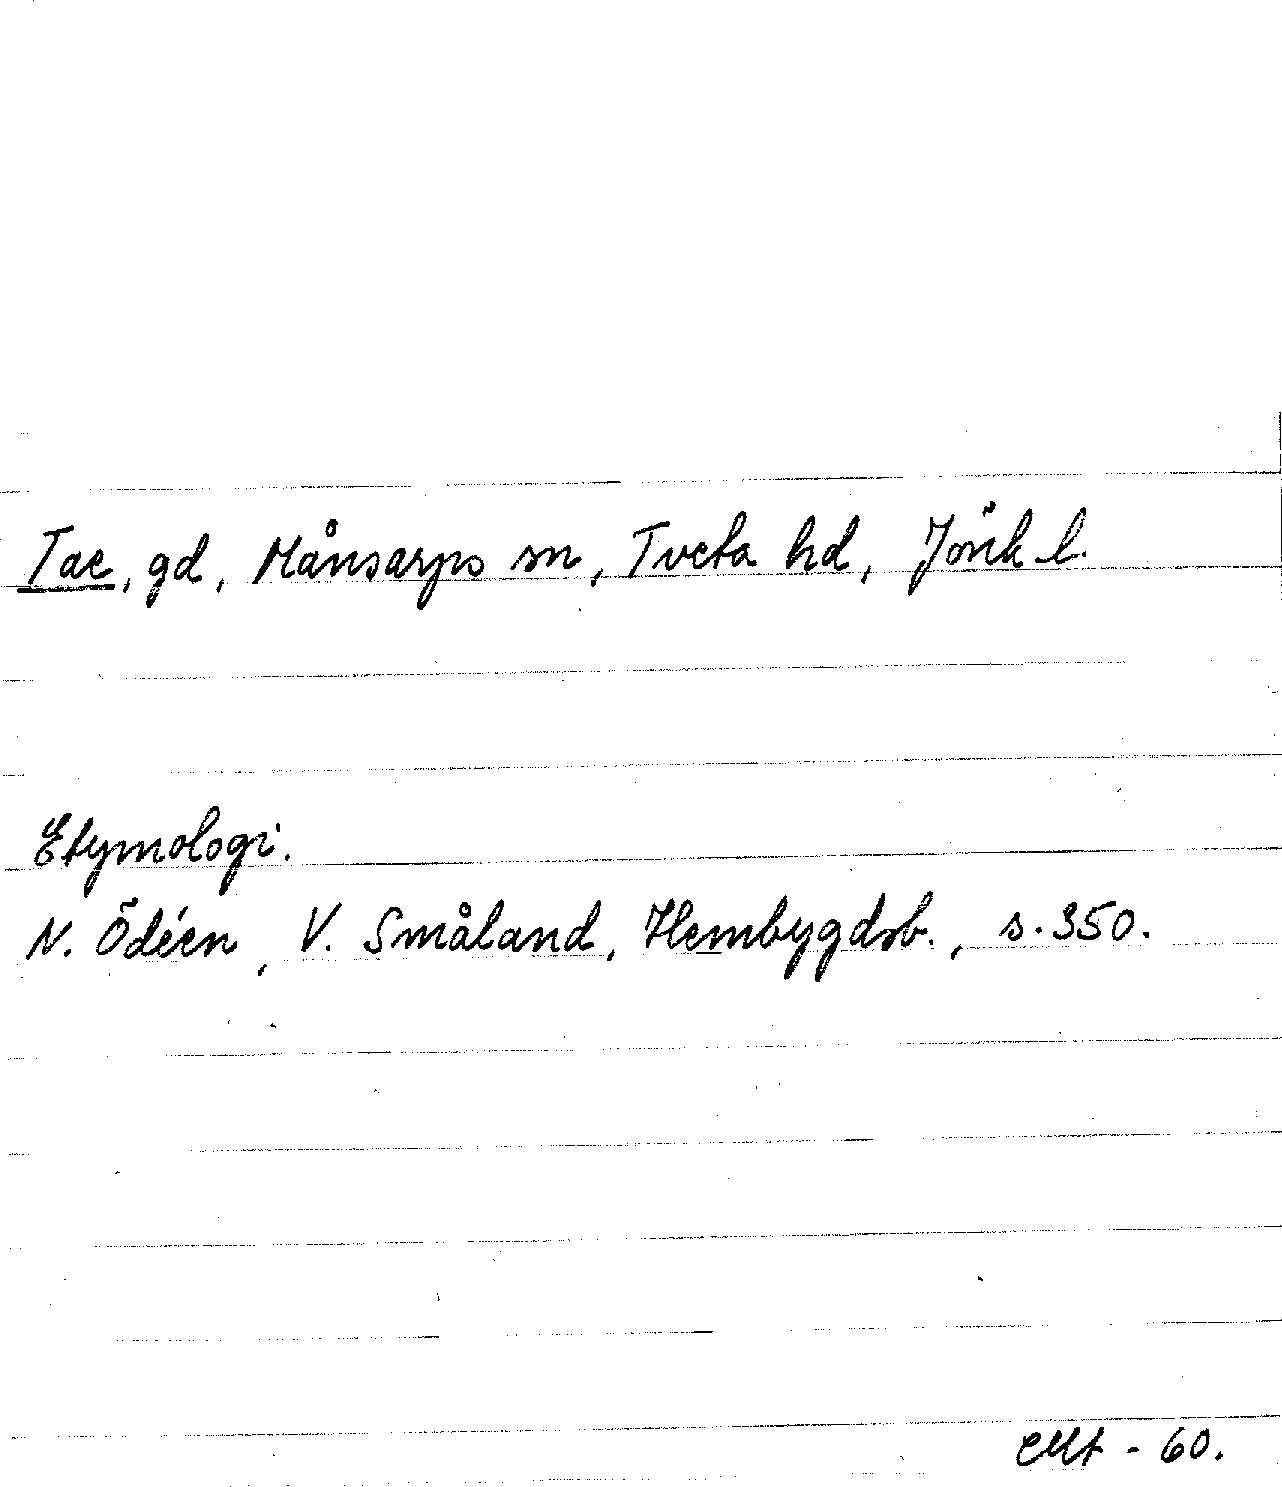 Tae, gd, Månsarps sn, Tveta hd, Jönk l.
Etymologi.
N. Ödéen, V. Småland, Hembygdsb., s. 350.
- 60.